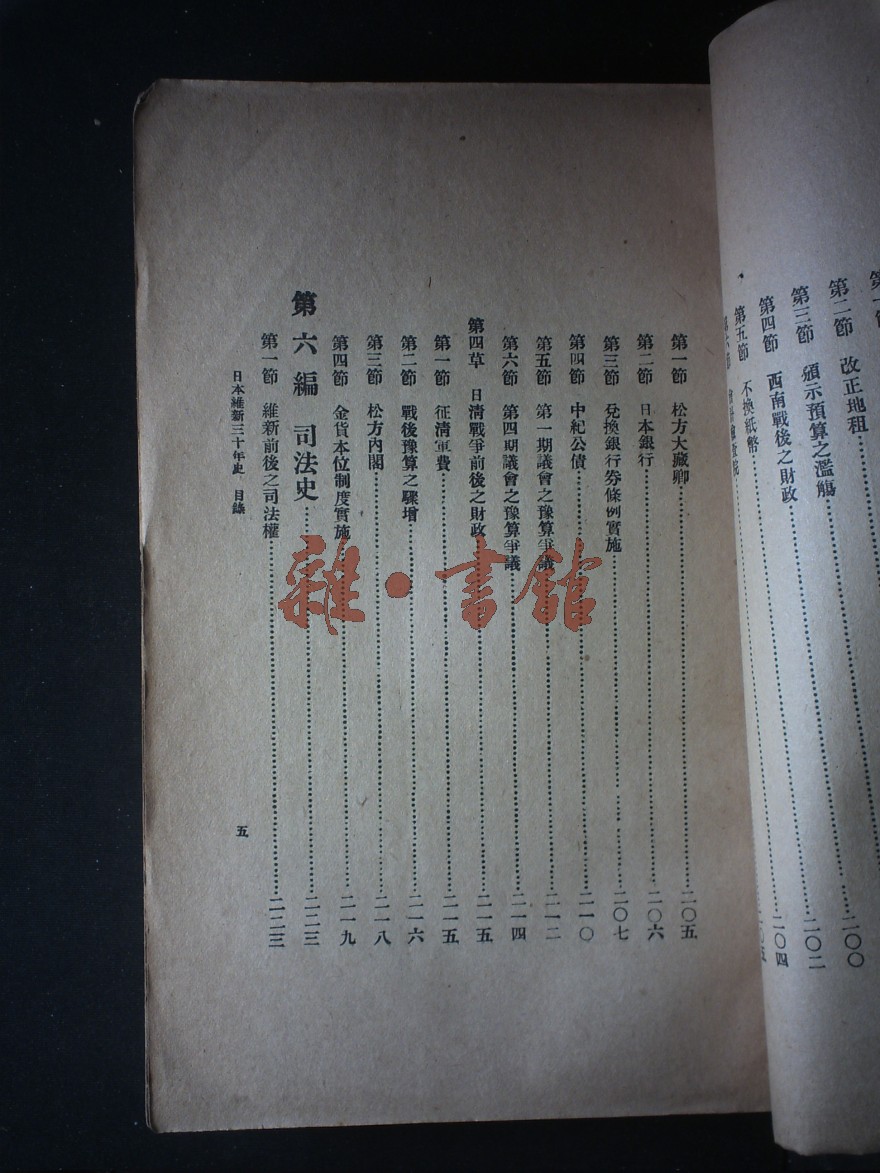 第二節　改正地租……二〇〇
第三節　頒示預算之濫觴……二〇二
第四節　西南戰後之財政……二〇四
第五節　不換紙幣
第一節　松方大藏卿……二〇五
第二節　日本銀行……二〇六
第三節　兌換銀行券條例實施……二〇七
第四節　中紀公債……二一〇
第五節　第一期議會之豫算爭議……二一二
第六節　第四期議會之豫算爭議……二一四
第四草　日清戰爭前後之財政……二一五
第一節　征清軍費……二一五
第二節　戰後豫算之驟增……二一六
第三節　松方內閣……二一八
第四節　金貨本位制度實施……二一九
第六編　司法史……二二三
第一節　維新前後之司法權……二二三
日本維新三十年史　目錄
五
雜·書館